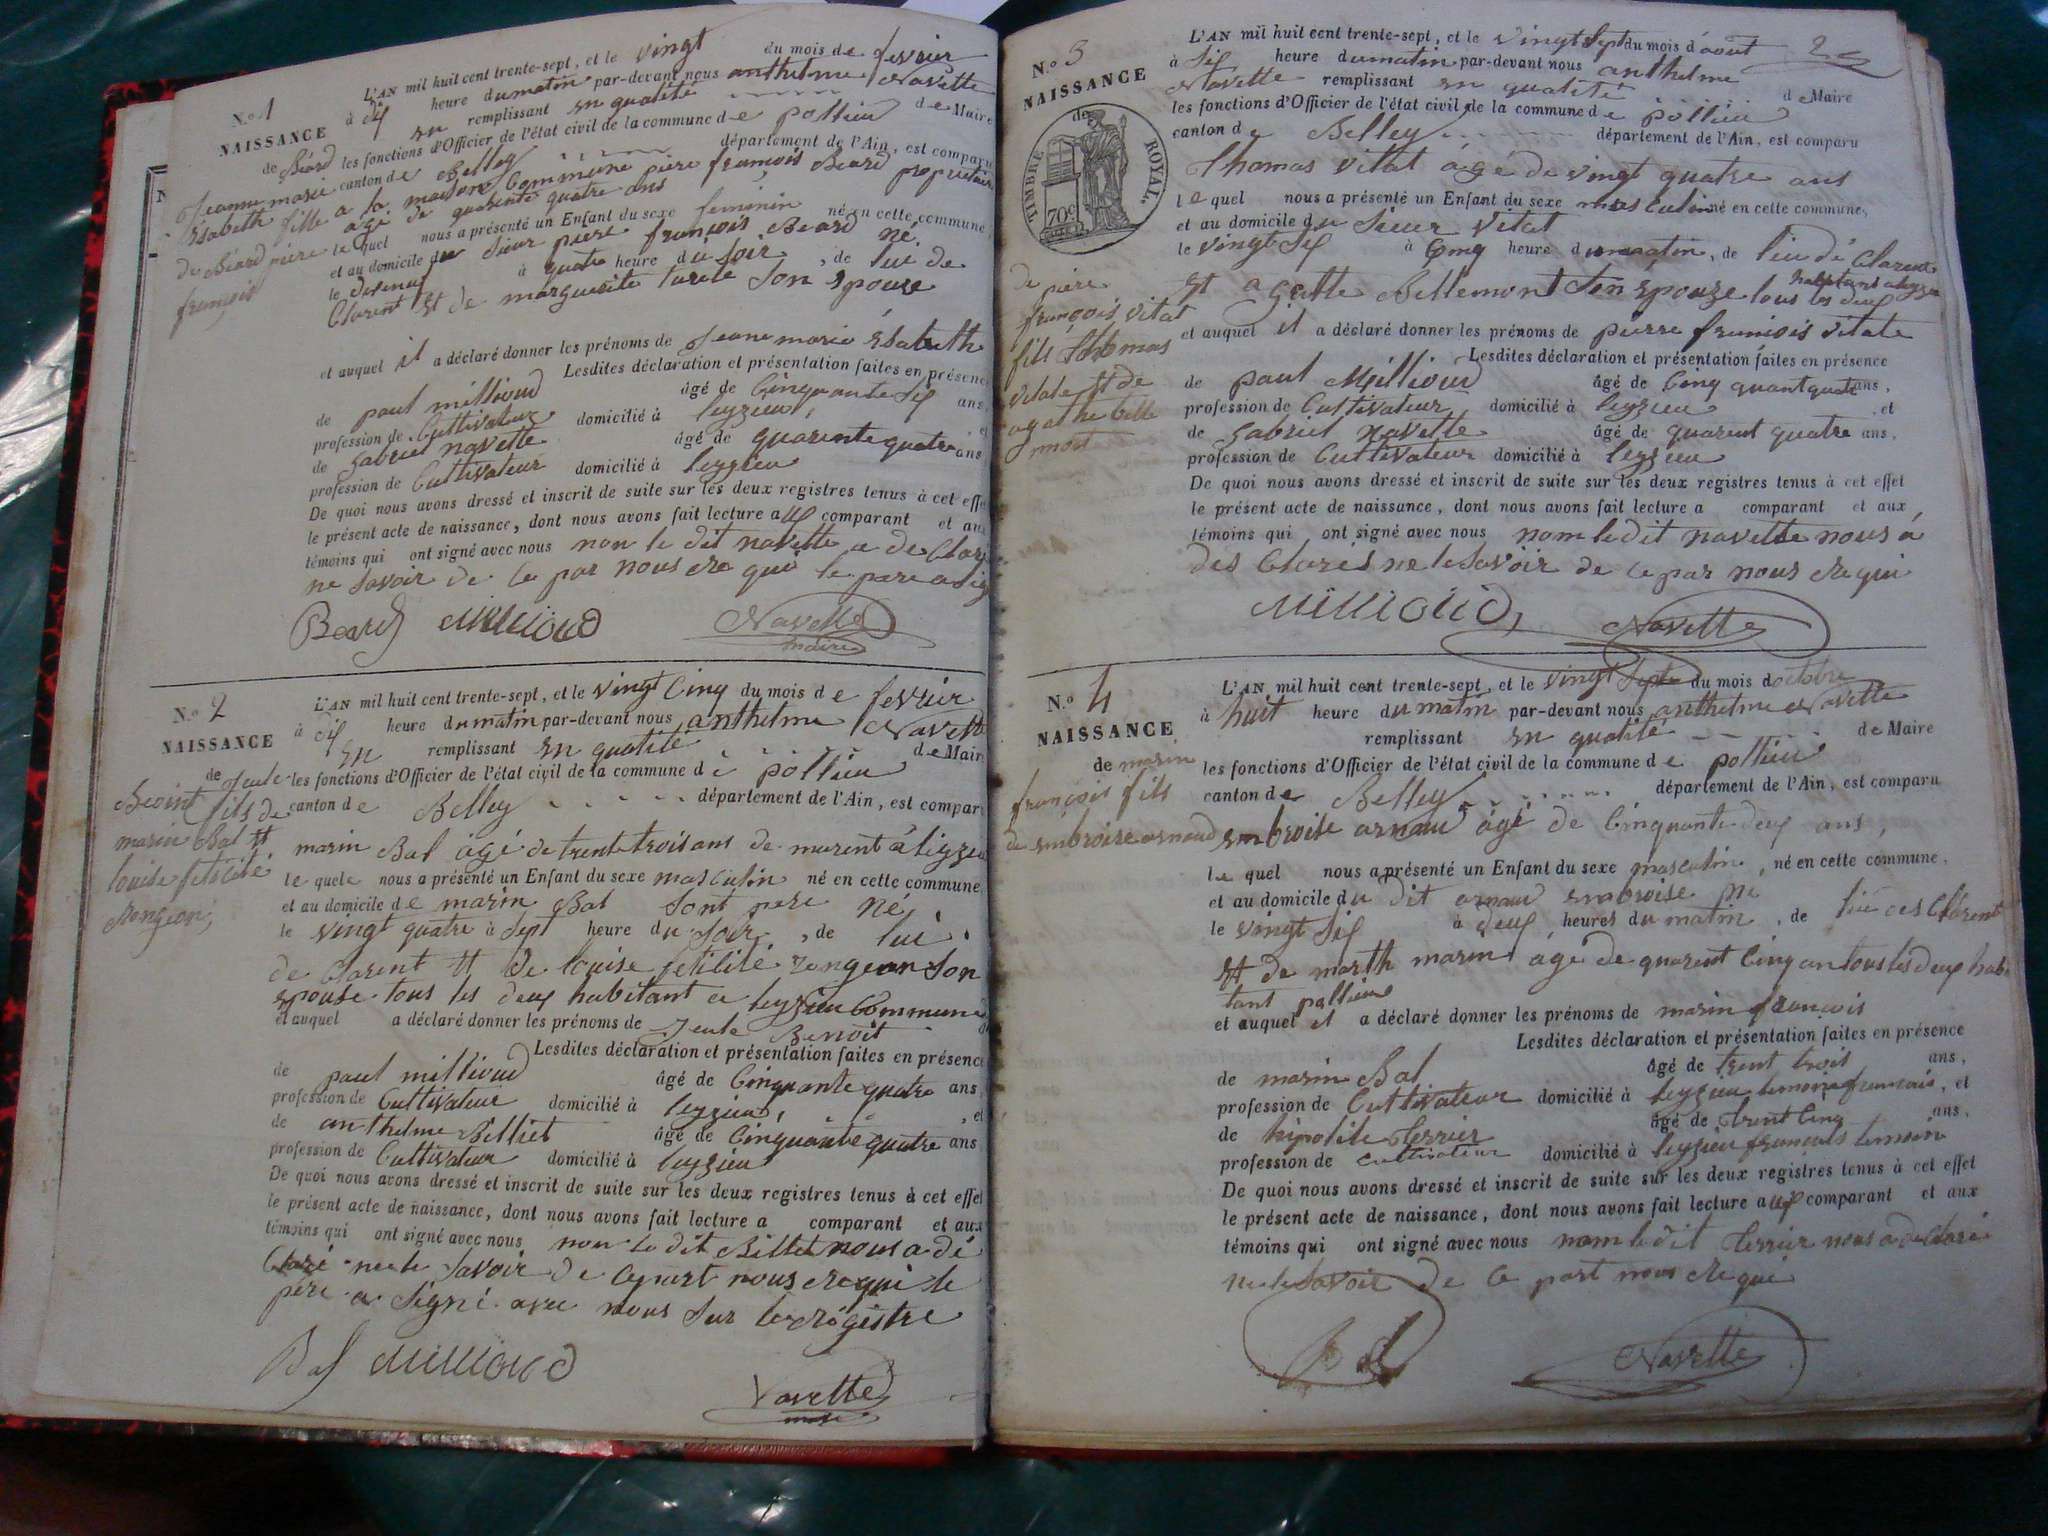 N.o 1
NAISSANCE
de Béard
Jeanne marie
Esabeth fille
de Béard piére
françois
L'AN mil huit cent trente-sept, et le vingt du mois de fevrier
à dix heure du matin par-devant nous anthelme Navette
en remplissant en qualité de Maire
les fonctions d'Officier de l'état civil de la commune de pollieu
canton de Belley département de l'Ain, est comparu
a la maison Commune piére françois Béard propriétaire
agé de quarente quatre ans
le quel nous a présenté un Enfant du sexe feminin né en cette commune,
et au domicile du Sieur piere françois Beard né
le disneuf à quatre heure du soir, de lui de
Clarent Et de marguerite son Epouze
et auquel il a déclaré donner les prénoms de Jeanne marie Esabeth
Lesdites déclaration et présentation faites en présence
de paul millioud âgé de Cinquante six ans,
profession de Cultivateur domicilié à leyzieu, et
de gabriel navette âgé de quarente quatre ans
profession de Cultivateur domicilié à leyzieu
De quoi nous avons dressé et inscrit de suite sur les deux registres tenus à cet effet
le présent acte de naissance, dont nous avons fait lecture aux comparant et aux
témoins qui ont signé avec nous non le dit navette a de Claré
ne savoir de ce par nous que le pere a sig
Beard Millioud Navette
maire
N.o 2
NAISSANCE
de Jeule
Benoit fils de
marin Bal Et
louise felicité
Rongeon
L'AN mil huit cent trente-sept, et le vingt Cinq du mois de fevrier
à dix heure du matin par-devant nous anthelme Navette
En remplissant en qualité de Maire
les fonctions d'Officier de l'état civil de la commune de pollieu
canton de Belley département de l'Ain, est comparu
marin Bal âgé de trente trois ans de murent à leyzieu
le quele nous a présenté un Enfant du sexe masculin né en cette commune,
et au domicile de marin Bal sont pere né
le vingt quatre à sept heure du soir, de lui
de Clarent Et de louise felilité rongeon son
Epouse tous les deux habitant a leyzieu Commune d
et auquel a déclaré donner les prénoms de Jeule Benoit
Lesdites déclaration et présentation faites en présence
de paul millioud âgé de Cinquante quatre ans,
profession de Cultivateur domicilié à leyzieu, et
de anthelme Billiet âgé de Cinquante quatre ans
profession de Cultivateur domicilié à leyzieu
De quoi nous avons dressé et inscrit de suite sur les deux registres tenus à cet effet
le présent acte de naissance, dont nous avons fait lecture a comparant et aux
témoins qui ont signé avec nous non le dit Billet nous a dé
Claré ne le savoir de ce part nous requi le
pére a signé avec nous sur le régistre
Bal Millioud
Navette
maire
2
N.o 3
NAISSANCE
de
TIMBRE ROYAL.
70c
piére
françois vitat
fils thomas
vitale Et de
agathe belle
mont
L'AN mil huit cent trente-sept, et le vingt sept du mois d'août
à six heure du matin par-devant nous anthelme
Navette remplissant en qualité de Maire
les fonctions d'Officier de l'état civil de la commune de pollieu
canton de Belley département de l'Ain, est comparu
Thomas vitat âgé de vingt quatre ans
le quel nous a présenté un Enfant du sexe masculin né en cette commune,
et au domicile du Sieur vitat
le vingt six à Cinq heure du matin, de lui dé Clarent
Et agatte Bellemont son Epouze tous les deux habitant a leyzieu
et auquel il a déclaré donner les prénoms de pierre françois vitale
Lesdites déclaration et présentation faites en présence
de paul Millioud âgé de Cinq quant quatre ans,
profession de Cultivateur domicilié à leyzieu et
de gabriel navette âgé de quarent quatre ans,
profession de Cultivateur domicilié à leyzieu
De quoi nous avons dressé et inscrit de suite sur les deux registres tenus à cet effet
le présent acte de naissance, dont nous avons fait lecture a comparant et aux
témoins qui ont signé avec nous nom le dit navette nous à
des Claré ne le savoir de ce par nous requi
Millioud, Navette
N.o 4
NAISSANCE
de marin
françois fils
de embroise arnaud
L'AN mil huit cent trente-sept, et le vingt sept du mois d'octobre
à huit heure du matin par-devant nous anthelme Navette
remplissant en qualité de Maire
les fonctions d'Officier de l'état civil de la commune de pollieu
canton de Belley département de l'Ain, est comparu
embroise arnaud âgé de Cinquante deux ans,
le quel nous a présenté un Enfant du sexe masculin, né en cette commune,
et au domicile du dit arnaud embroise né
le vingt six à deux heures du matin, de lui des Clarent
Et de marth marin âgé de quarent Cinq an tous les deux habi
tant pollieu
et auquel il a déclaré donner les prénoms de marin françois
Lesdites déclaration et présentation faites en présence
de marin Bal âgé de trent trois ans,
profession de Cultivateur domicilié à leyzieu temoin français, et
de hipolite terrier âgé de trent Cinq ans,
profession de cultivateur domicilié à leyzieu français temoin
De quoi nous avons dressé et inscrit de suite sur les deux registres tenus à cet effet
le présent acte de naissance, dont nous avons fait lecture aux comparant et aux
témoins qui ont signé avec nous nom le dit terrier nous a de Claré
ne le savoir de ce part nous requi
Navette